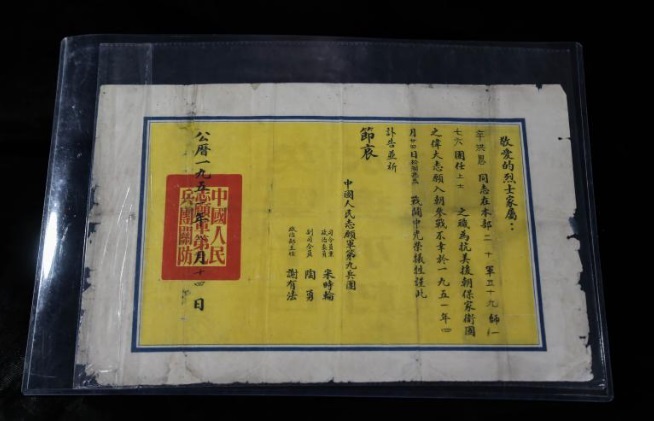 敬愛的烈士家屬：
同志在本部二十軍五十九師一
七六團任上士 之職為抗美援朝保家衛國
之偉大志願入朝參戰不幸於一九五一年四
月廿四日 戰鬪中光榮犧牲謹此
訃告並祈
節哀
中國人民志願軍第九兵團
司令員兼
政治委員 宋時輪
副司令員 陶勇
政治部主任 謝有法
公曆一九五 年 月 十四日
中國人民
志願軍第
兵團關防